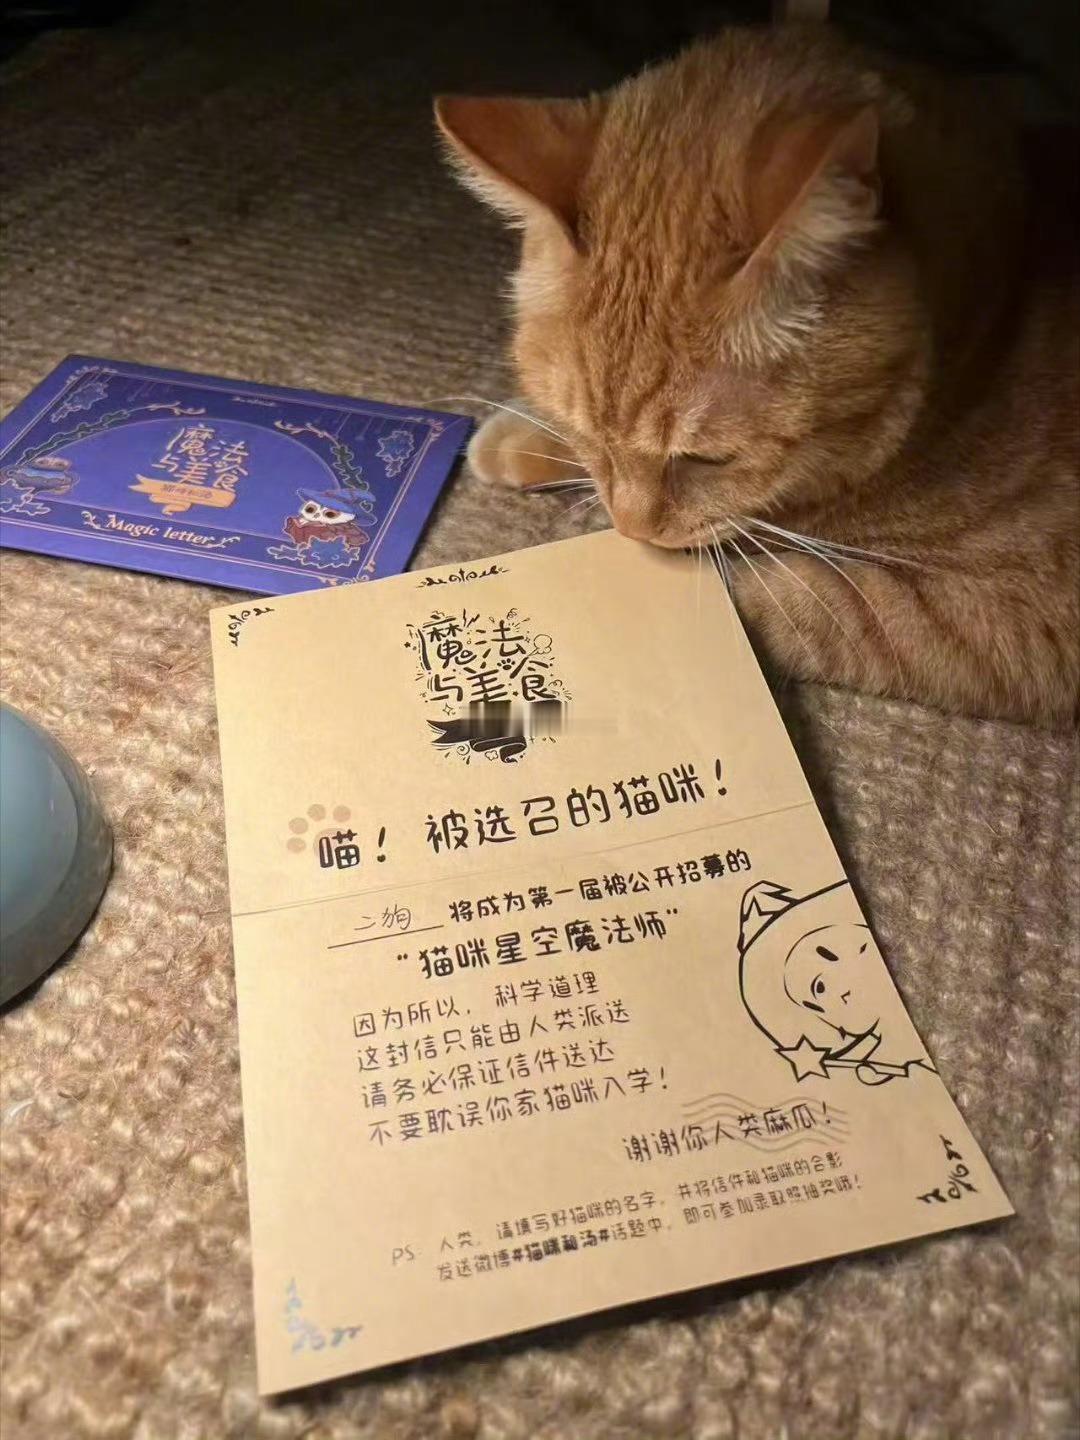 魔法
与美食
Magic letter
魔法
与美食
喵！被选召的猫咪！
二狗 将成为第一届被公开招募的
“猫咪星空魔法师”
因为所以，科学道理
这封信只能由人类派送
请务必保证信件送达
不要耽误你家猫咪入学！
谢谢你人类麻瓜！
PS: 人类，请填写好猫咪的名字，并将信件和猫咪的合影
发送微博#猫咪和汤#话题中，即可参加录取照抽奖哦！